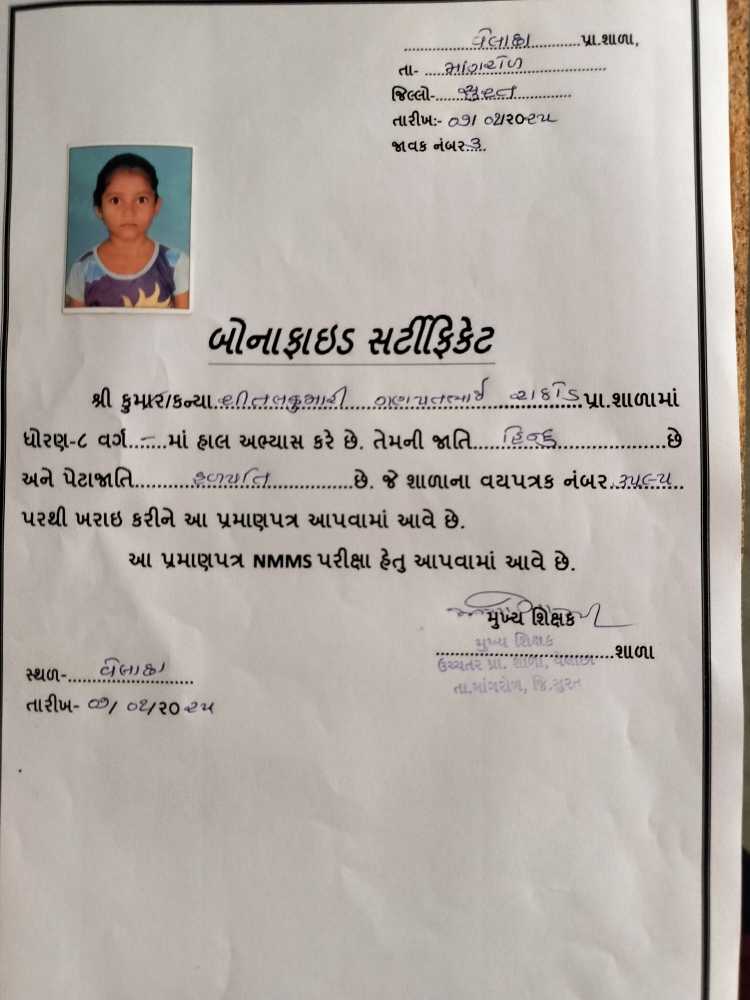 વેલાછા પ્રા.શાળા,
તા- માંગરોળ
જિલ્લો- સુરત
તારીખ:- ૦૧/ ૦૨/૨૦૨૫
જાવક નંબર.૩.
બોનાફાઇડ સર્ટીફિકેટ
શ્રી કુમાર/કન્યા શીતલકુમારી ગણપતભાઈ રાઠોડ પ્રા.શાળામાં
ધોરણ-૮ વર્ગ..-..માં હાલ અભ્યાસ કરે છે. તેમની જાતિ હિન્દુ છે
અને પેટાજાતિ હળપતિ છે. જે શાળાના વયપત્રક નંબર
પરથી ખરાઇ કરીને આ પ્રમાણપત્ર આપવામાં આવે છે.
આ પ્રમાણપત્ર NMMS પરીક્ષા હેતુ આપવામાં આવે છે.
મુખ્ય શિક્ષક
મુખ્ય શિક્ષક
શાળા
ઉચ્ચતર પ્રા. શાળા, વેલાછા
તા.માંગરોળ, જિ.સુરત
સ્થળ- વેલાછા
તારીખ- ૦૧/ ૦૨/૨૦૨૫